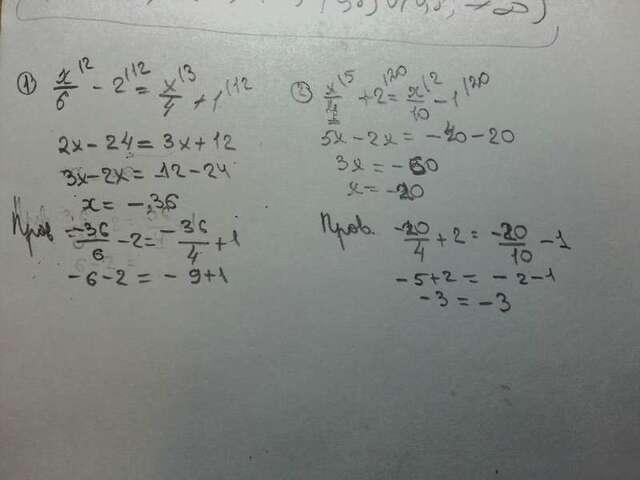 1) x/6 |2 - 2 |12 = x/4 |3 + 1 |12
2x - 24 = 3x + 12
3x - 2x = -12 - 24
x = -36
Пров -36/6 - 2 = -36/4 + 1
-6 - 2 = -9 + 1
2) x/4 |5 + 2 |20 = x/10 |2 - 1 |20
5x - 2x = -40 - 20
3x = -60
x = -20
Пров. -20/4 + 2 = -20/10 - 1
-5 + 2 = -2 - 1
-3 = -3